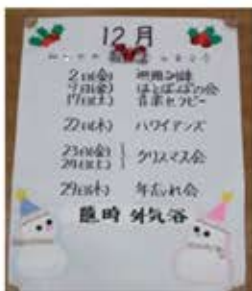 12月
2日(金)
9日(金) はとぽっぽの会
17日(土) 音楽セラピー
22日(木) ハワイアンズ
23日(金)
24日(土) クリスマス会
29日(木) 年忘れ会
臨時 外気浴